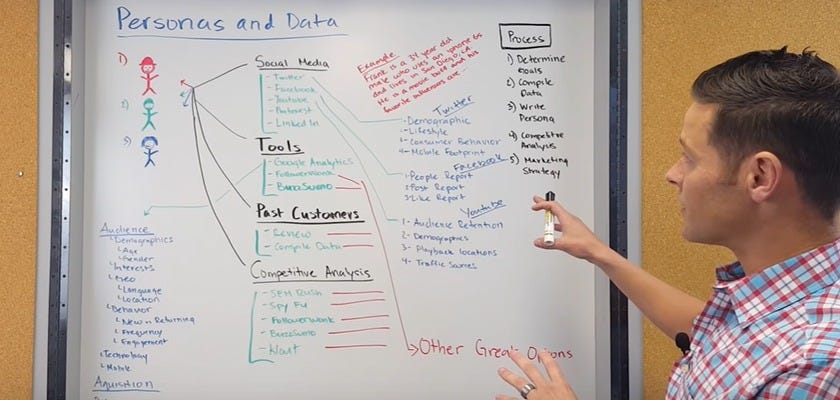 Personas and Data
1)
2)
3)
Social Media
- Twitter
- Facebook
- Youtube
- Pinterest
- LinkedIn
Tools
- Google Analytics
- FollowerWonk
- BuzzSumo
Past Customers
- Review
- Compile Data
Competitive Analysis
- SEM Rush
- Spy Fu
- FollowerWonk
- BuzzSumo
- Klout
Audience
Demographics
Age
Gender
Interests
Geo
Language
Location
Behavior
New vs Returning
Frequency
Engagement
Technology
Mobile
Aquisition
Example
Frank is a 34 year old
male who uses an iphone 6s
and lives in San Diego, CA
He is a movie buff and his
favorite influencers are...
Twitter
Demographic
- Lifestyle
- Consumer Behavior
4- Mobile Footprint
Facebook
1- People Report
2- Post Report
3- Like Report
Youtube
1- Audience Retention
2- Demographics
3- Playback locations
4- Traffic Sources
Other Great Options
Process
1) Determine
Goals
2) Compile
Data
3) Write
Persona
4) Competitive
Analysis
5) Marketing
Strategy